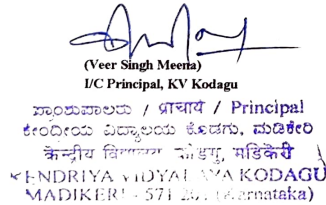 (Veer Singh Meena)
I/C Principal, KV Kodagu
ಪ್ರಾಂಶುಪಾಲರು / प्राचार्य / Principal
ಕೇಂದ್ರೀಯ ವಿದ್ಯಾಲಯ ಕೊಡಗು, ಮಡಿಕೇರಿ
केन्द्रीय विद्यालय कोडगु, मडिकेरी
KENDRIYA VIDYALAYA KODAGU
MADIKERI - 571 201 (Karnataka)